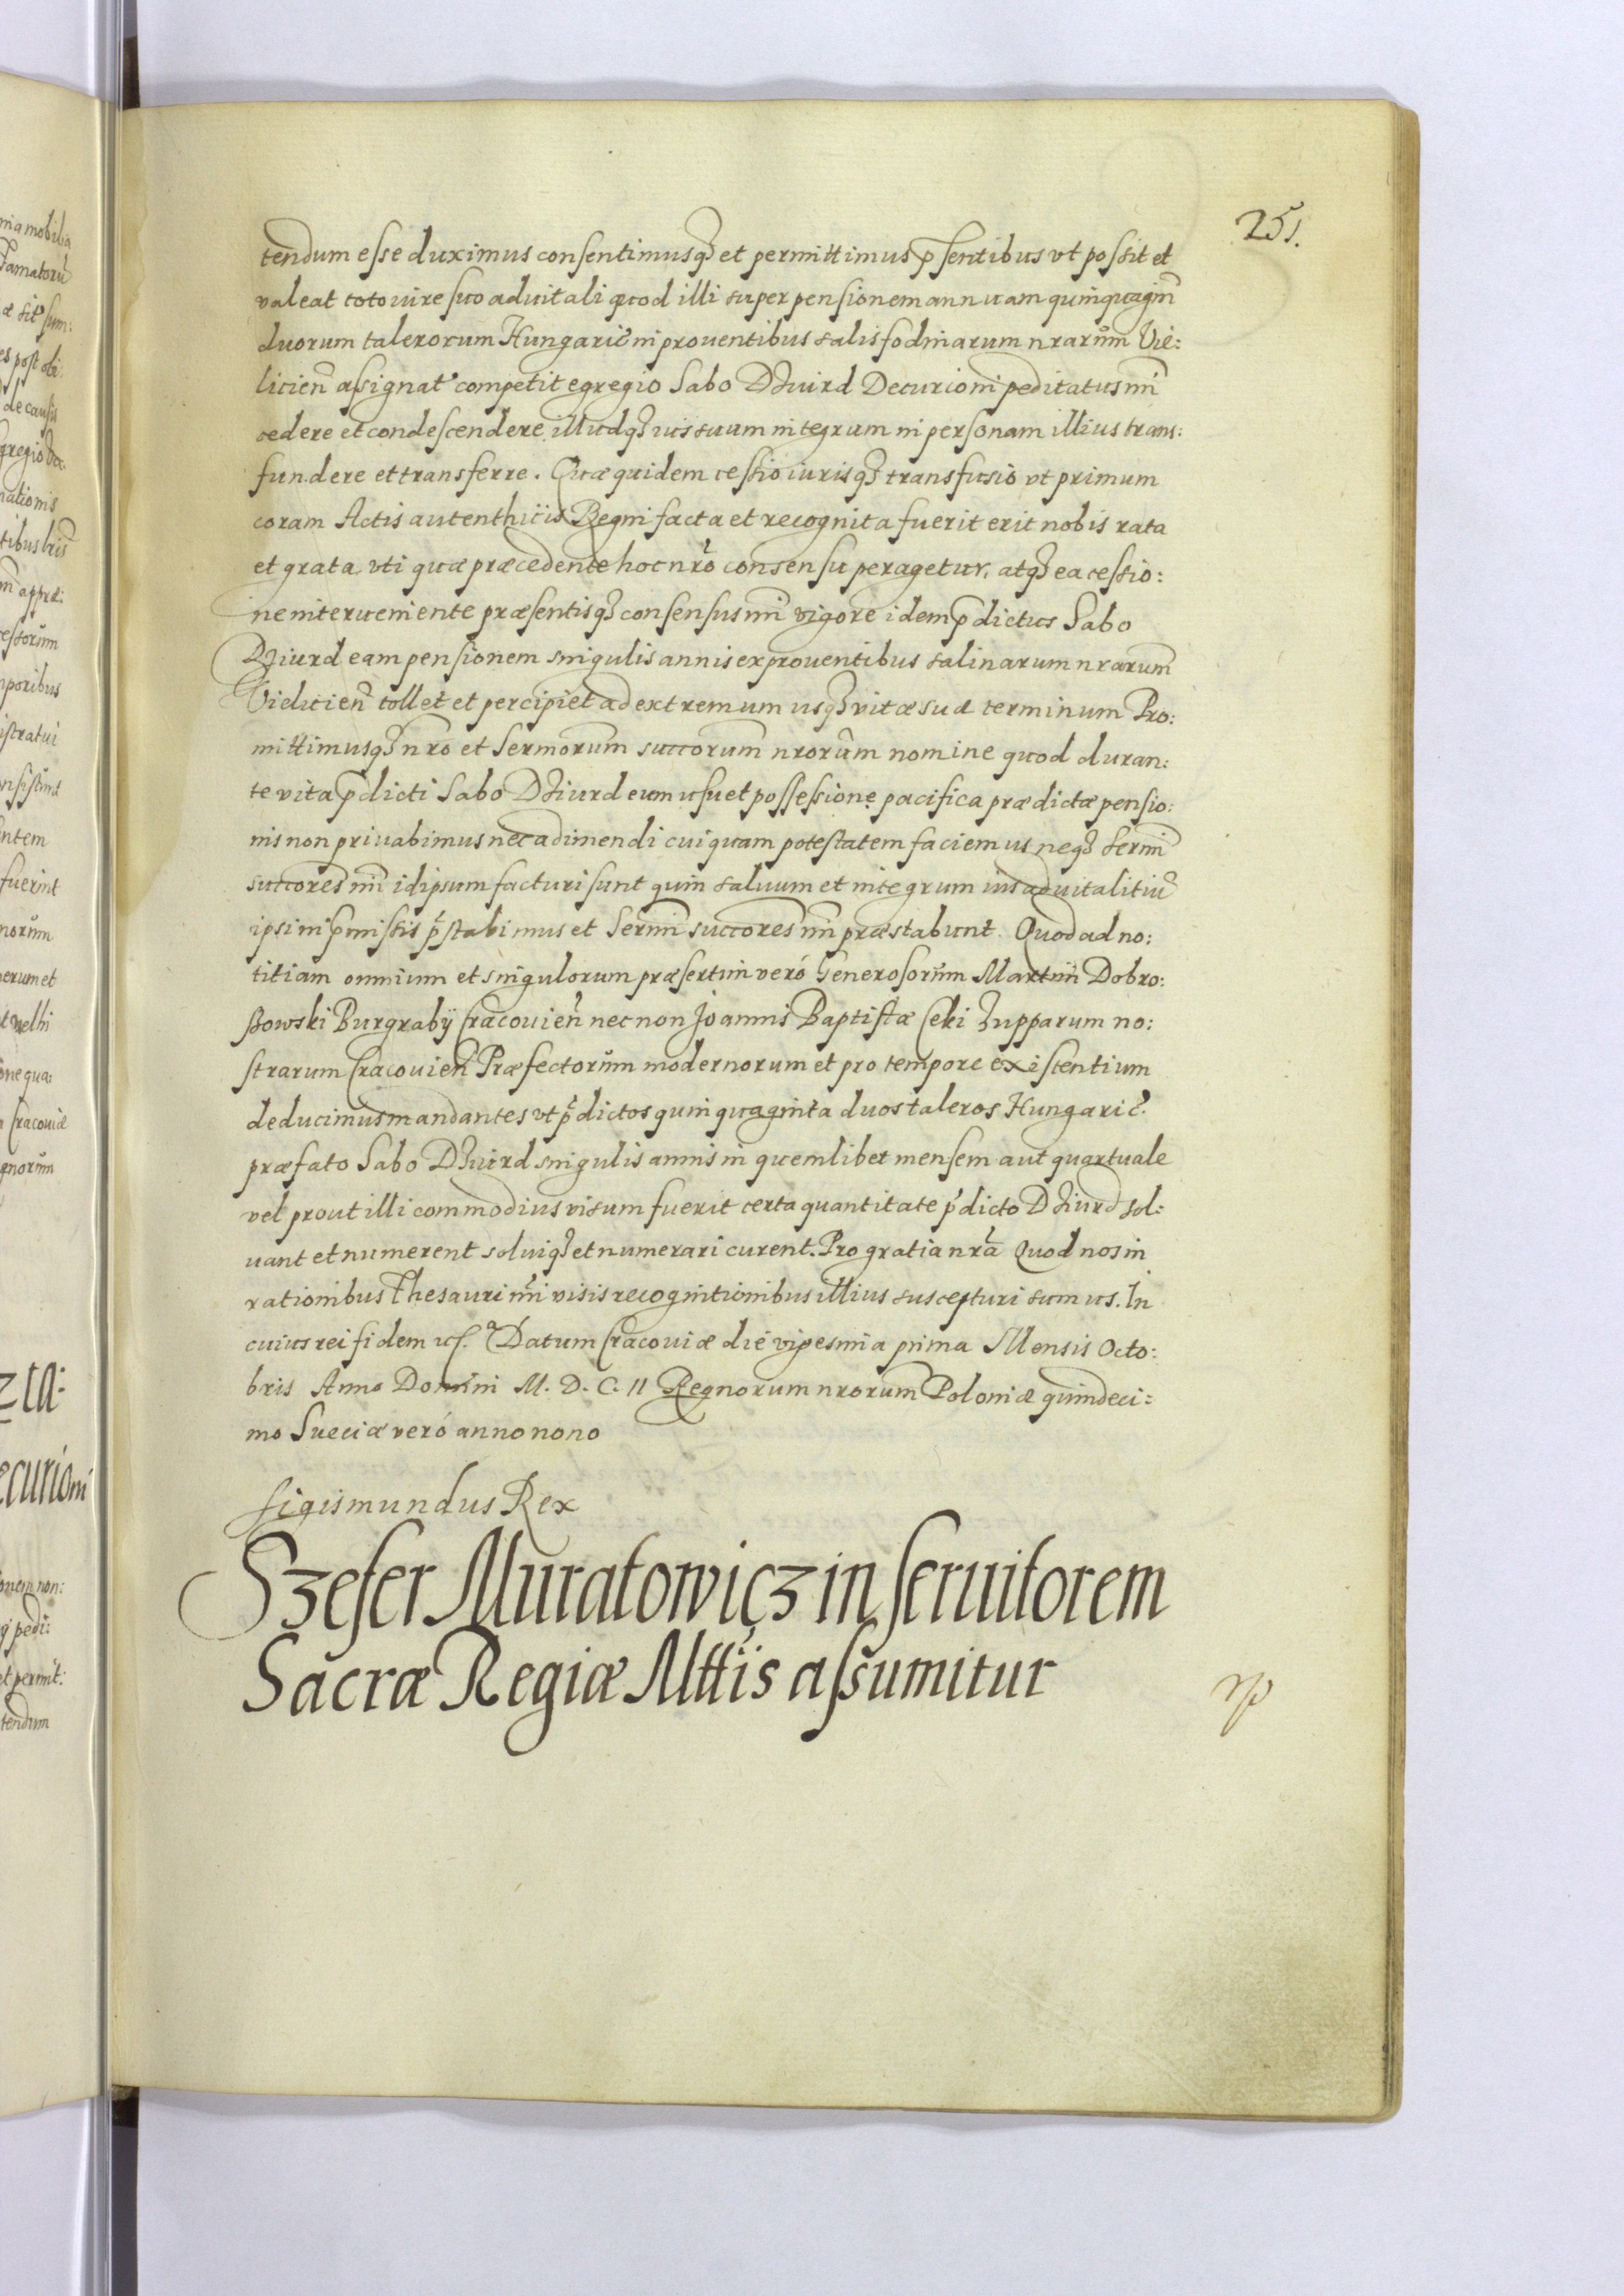 251.
tendum esse duximus consentimusq₃ et permittimus p̄sentibus vt possit et
valeat toto iure suo aduitali quod illi super pensionem annuam quinquagin̄
duorum talerorum Hungaric̄ in prouentibus salisfodinarum nrarum̄ Vie:
licien̄ assignat' competit egregio Sabo Dziurd Decurioni peditatus nr̄i
cedere et condescendere illudq₃ ius suum integrum in personam illius trans:
fundere et transferre. Quæ quidem cessio iurisq₃ transfusio vt primum
coram Actis autenthicis Regni facta et recognita fuerit erit nobis rata
et grata vti quæ præcedente hoc nr̄o consensu peragetur, atq₃ ea cessio:
ne interueniente præsentisq₃ consensus nr̄i vigore idem p̄dictus Sabo
Dziurd eam pensionem singulis annis ex prouentibus salinarum nrarum̄
Vielicien̄ tollet et percipiet ad extremum usq₃ vitæ suæ terminum Pro:
mittimusq₃ nr̄o et Sermorum̄ succorum̄ nrorum̄ nomine quod duran:
te vita p̄dicti Sabo Dziurd eum usu et possessione pacifica prædictæ pensio:
nis non priuabimus nec adimendi cuiquam potestatem faciemus neq₃ Sermi̅
succores̄ nr̄i idipsum facturi sunt quin saluum et integrum ius aduitalitiū
ipsi in p̄missis p̄stabimus et Sermi̅ succores̄ nr̄i præstabunt. Quod ad no:
titiam omnium et singulorum præsertim veró Generosorum̄ Martini Dobro:
ßowski Burgrabij Cracouien̄ necnon Joannis Baptistæ Ceki Zupparum no:
strarum Cracouien̄ Præfectorum̄ modernorum et pro tempore existentium
deducimus mandantes vt p̄dictos quinquaginta duos taleros Hungaric̄.
præfato Sabo Dziurd singulis annis in quemlibet mensem aut quartuale
vel prout illi commodius visum fuerit certa quantitate p̄dicto Dziurd sol:
uant et numerent soluiq₃ et numerari curent. Pro gratia nr̄a Quod nos in
rationibus Thesauri nr̄i visis recognitionibus illius suscepturi sumus. In
cuius rei fidem Datum Cracouiæ die vigesima prima Mensis Octo:
bris Anno Domini M. D. C. II Regnorum nrorum̄ Poloniæ quindeci:
mo Sueciæ veró anno nono
Sigismundus Rex
Szefer Muratowicz in seruitorem
Sacræ Regiæ Mttis assumitur